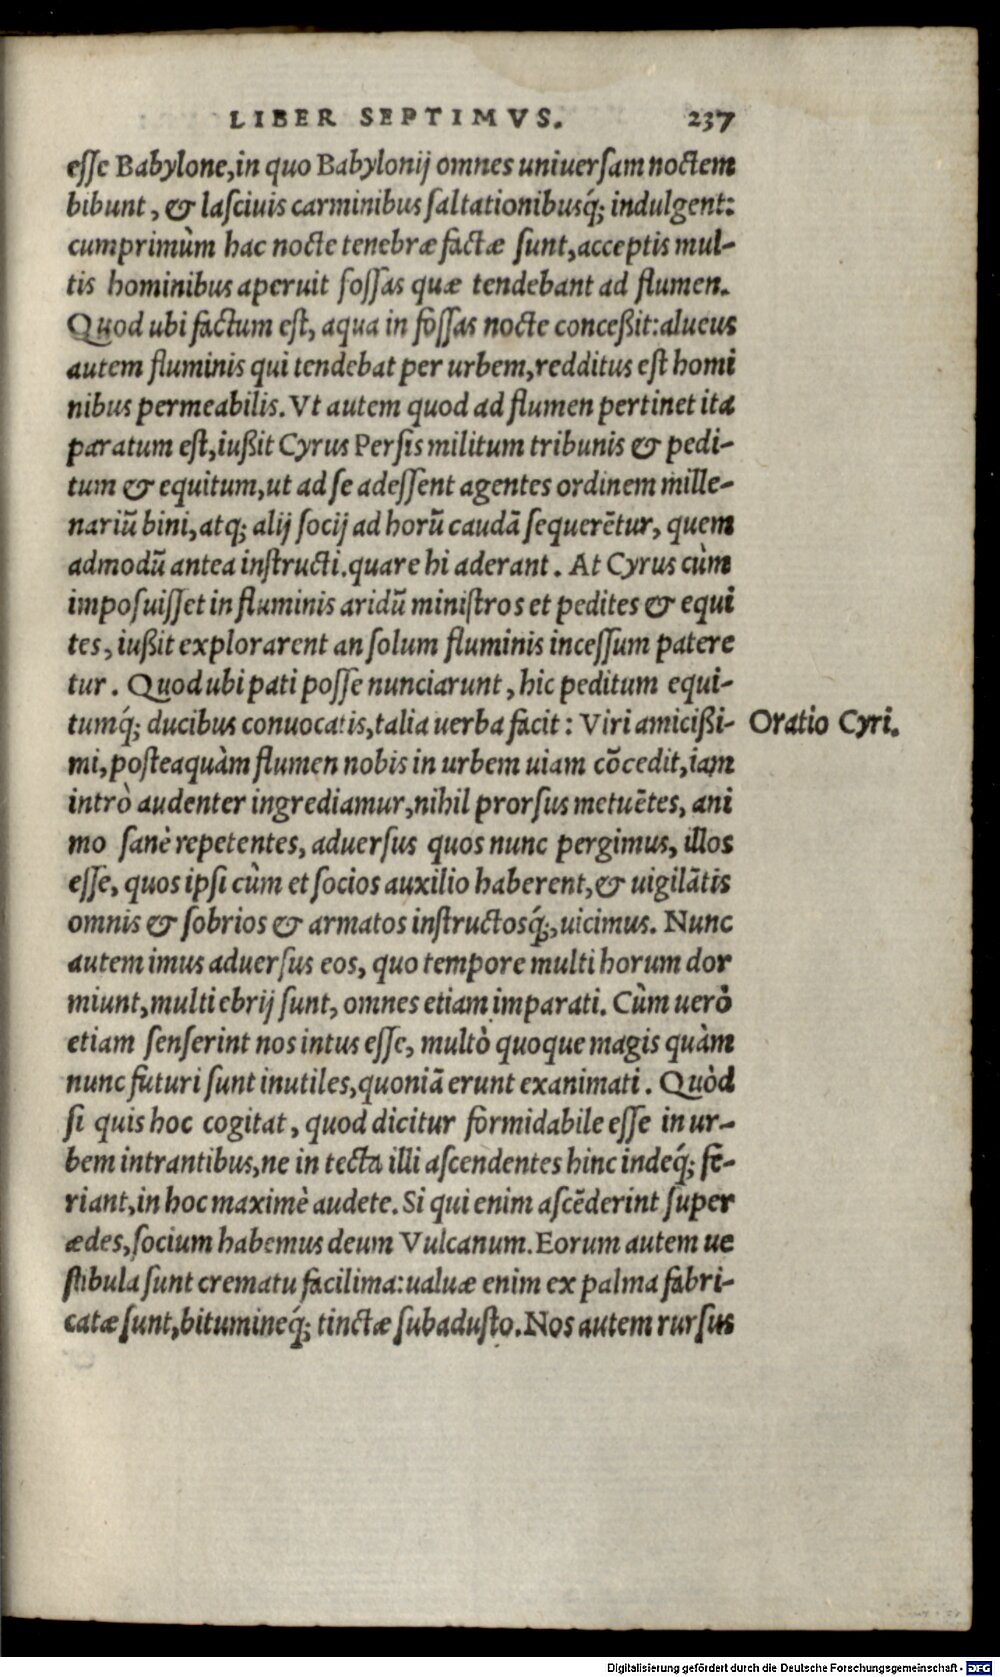 LIBER SEPTIMVS. 237
esse Babylone, in quo Babylonij omnes uniuersam noctem
bibunt, & lasciuis carminibus saltationibusq́; indulgent:
cumprimùm hac nocte tenebræ factæ sunt, acceptis mul-
tis hominibus aperuit fossas quæ tendebant ad flumen.
Quod ubi factum est, aqua in fossas nocte conceßit: alueus
autem fluminis qui tendebat per urbem, redditus est homi
nibus permeabilis. Vt autem quod ad flumen pertinet ita
paratum est, iußit Cyrus Persis militum tribunis & pedi-
tum & equitum, ut ad se adessent agentes ordinem mille-
nariũ bini, atq; alij socij ad horũ caudã sequerẽtur, quem
admodũ antea instructi. quare hi aderant. At Cyrus cùm
imposuisset in fluminis aridũ ministros et pedites & equi
tes, iußit explorarent an solum fluminis incessum patere
tur. Quod ubi pati posse nunciarunt, hic peditum equi-
tumq́; ducibus conuocatis, talia uerba facit: Viri amicißi-
Oratio Cyri.
mi, posteaquàm flumen nobis in urbem uiam cõcedit, iam
intrò audenter ingrediamur, nihil prorsus metuẽtes, ani
mo sanè repetentes, aduersus quos nunc pergimus, illos
esse, quos ipsi cùm et socios auxilio haberent, & uigilãtis
omnis & sobrios & armatos instructosq́;, uicimus. Nunc
autem imus aduersus eos, quo tempore multi horum dor
miunt, multi ebrij sunt, omnes etiam imparati. Cùm uerò
etiam senserint nos intus esse, multò quoque magis quàm
nunc futuri sunt inutiles, quoniã erunt exanimati. Quòd
si quis hoc cogitat, quod dicitur formidabile esse in ur-
bem intrantibus, ne in tecta illi ascendentes hinc indeq́; fe-
riant, in hoc maximè audete. Si qui enim ascẽderint super
ædes, socium habemus deum Vulcanum. Eorum autem ue
stibula sunt crematu facilima: ualuæ enim ex palma fabri-
catæ sunt, bitumineq́; tinctæ subadusto. Nos autem rursus
Digitalisierung gefördert durch die Deutsche Forschungsgemeinschaft - DFG